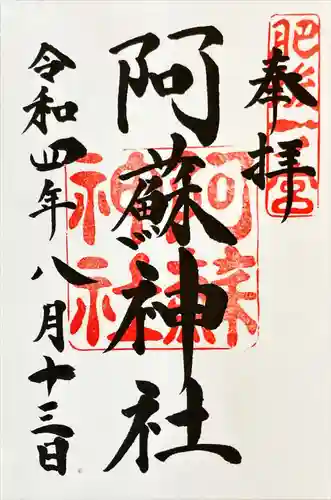 奉拝
肥後一宮
阿蘇神社
阿蘇神社
令和四年八月十三日